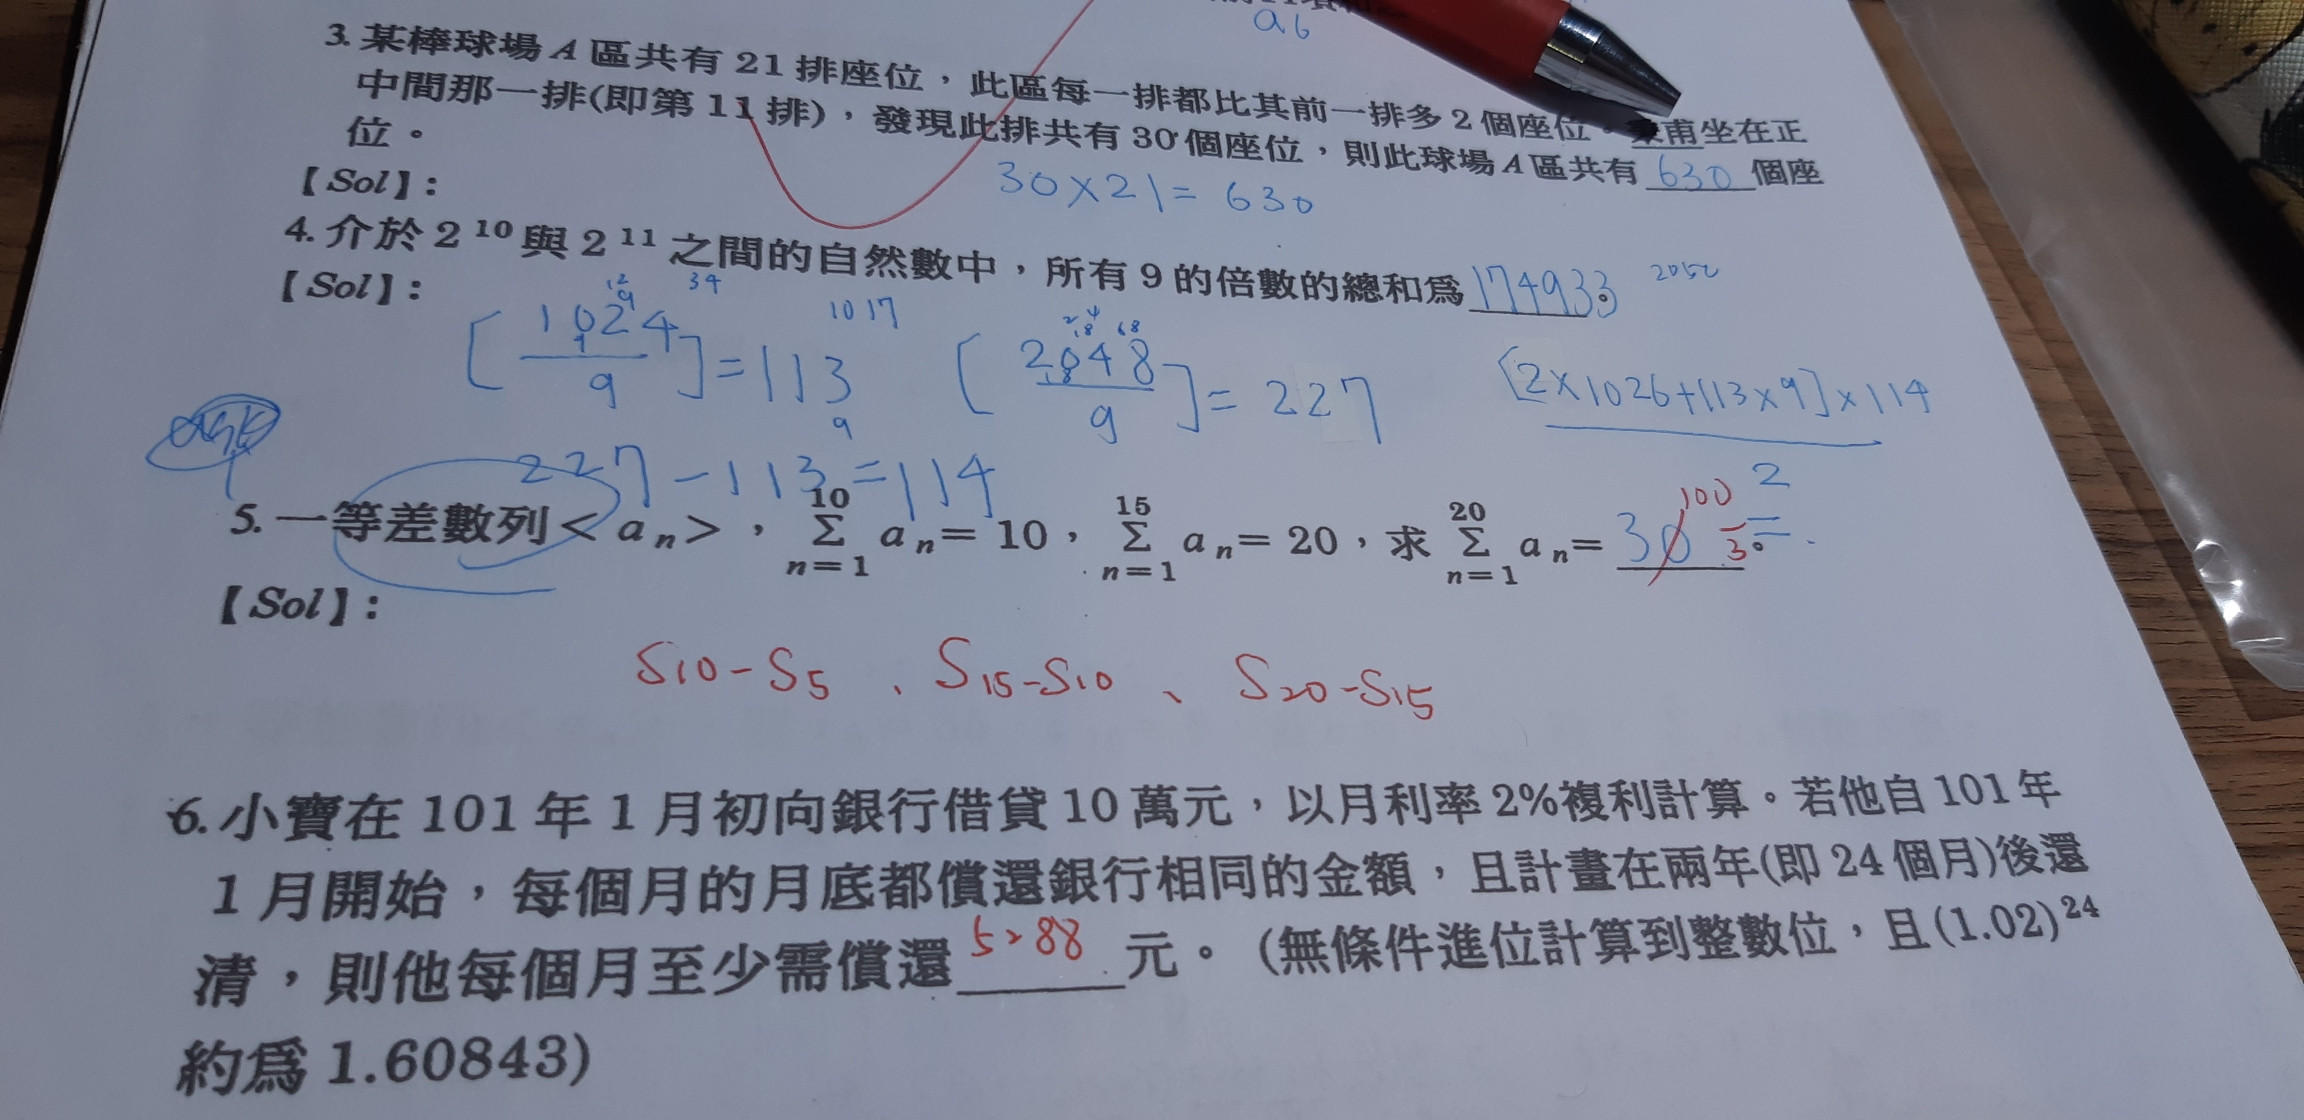 a6
3. 某棒球場 A 區共有 21 排座位，此區每一排都比其前一排多 2 個座位。甫坐在正
中間那一排(即第 11 排)，發現此排共有 30 個座位，則此球場 A 區共有 630 個座
位。
【Sol】:
30×21= 630
4. 介於 2^10 與 2^11 之間的自然數中，所有 9 的倍數的總和為 174933。
2052
【Sol】:
[1024/9]=113
1017
[2048/9]=227
[2×1026+113×9]×114
2
227-113=114
ask
5. 一等差數列 < a n >，10 Σ n=1 a n = 10，15 Σ n=1 a n = 20，求 20 Σ n=1 a n = 30 100/3。
【Sol】:
S10-S5、S15-S10、S20-S15
6. 小寶在 101 年 1 月初向銀行借貸 10 萬元，以月利率 2%複利計算。若他自 101 年
1 月開始，每個月的月底都償還銀行相同的金額，且計畫在兩年(即 24 個月)後還
清，則他每個月至少需償還 5288 元。(無條件進位計算到整數位，且(1.02)^24
約為 1.60843)